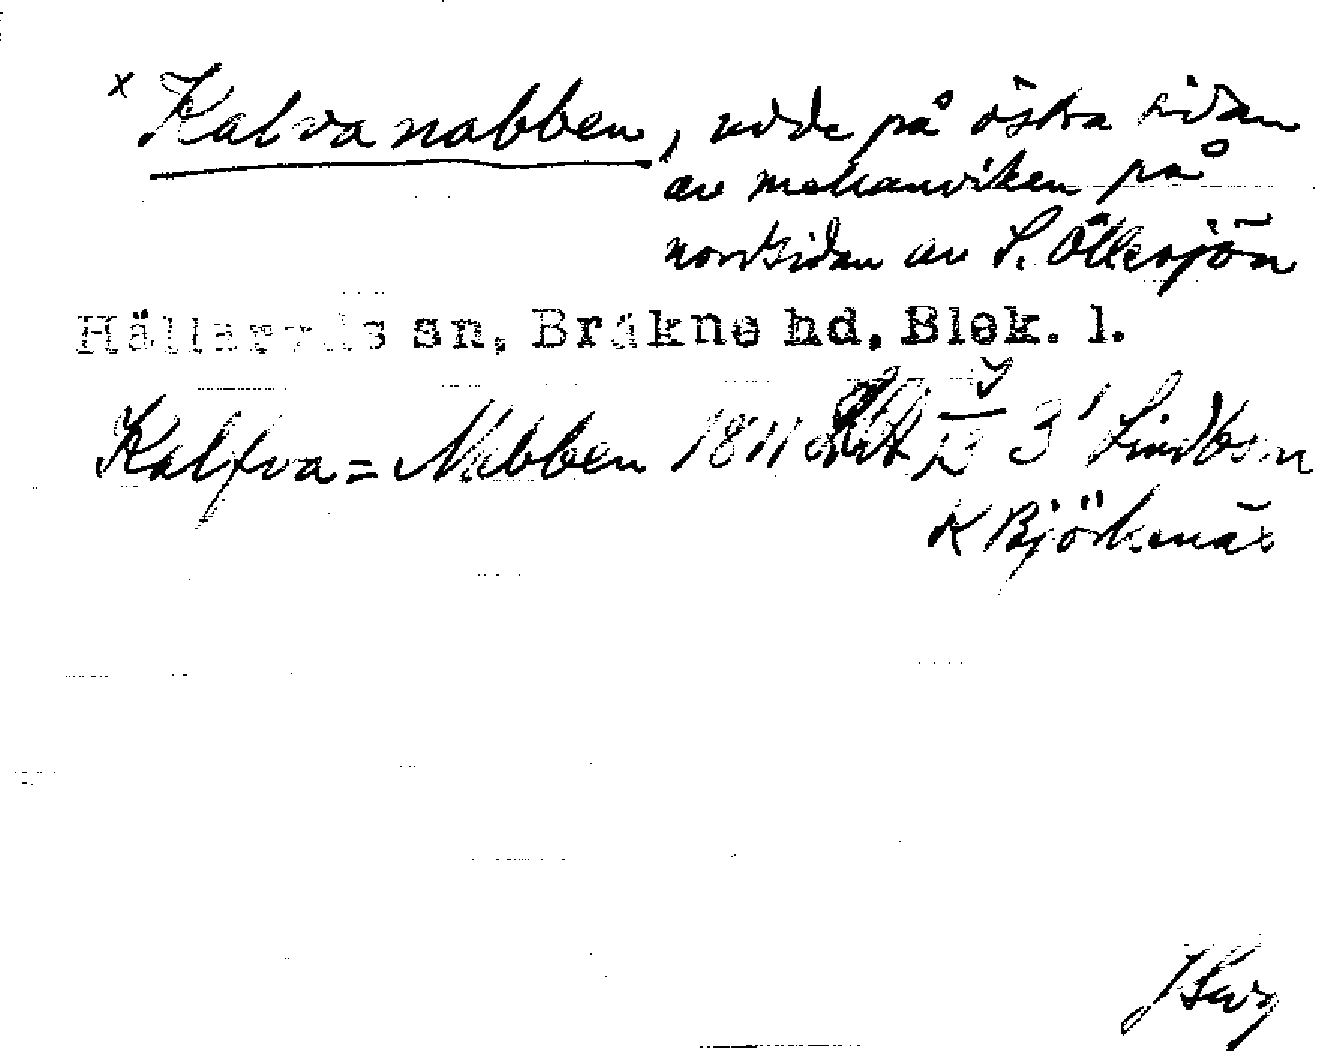 x Kalvanabben, udde på östra sidan
av mellanviken på
nordsidan av S. Öllesjön
Hällaryds sn, Bräkne hd, Blek. l.
Kalfva = Nabben 1811 3
K Björknäs